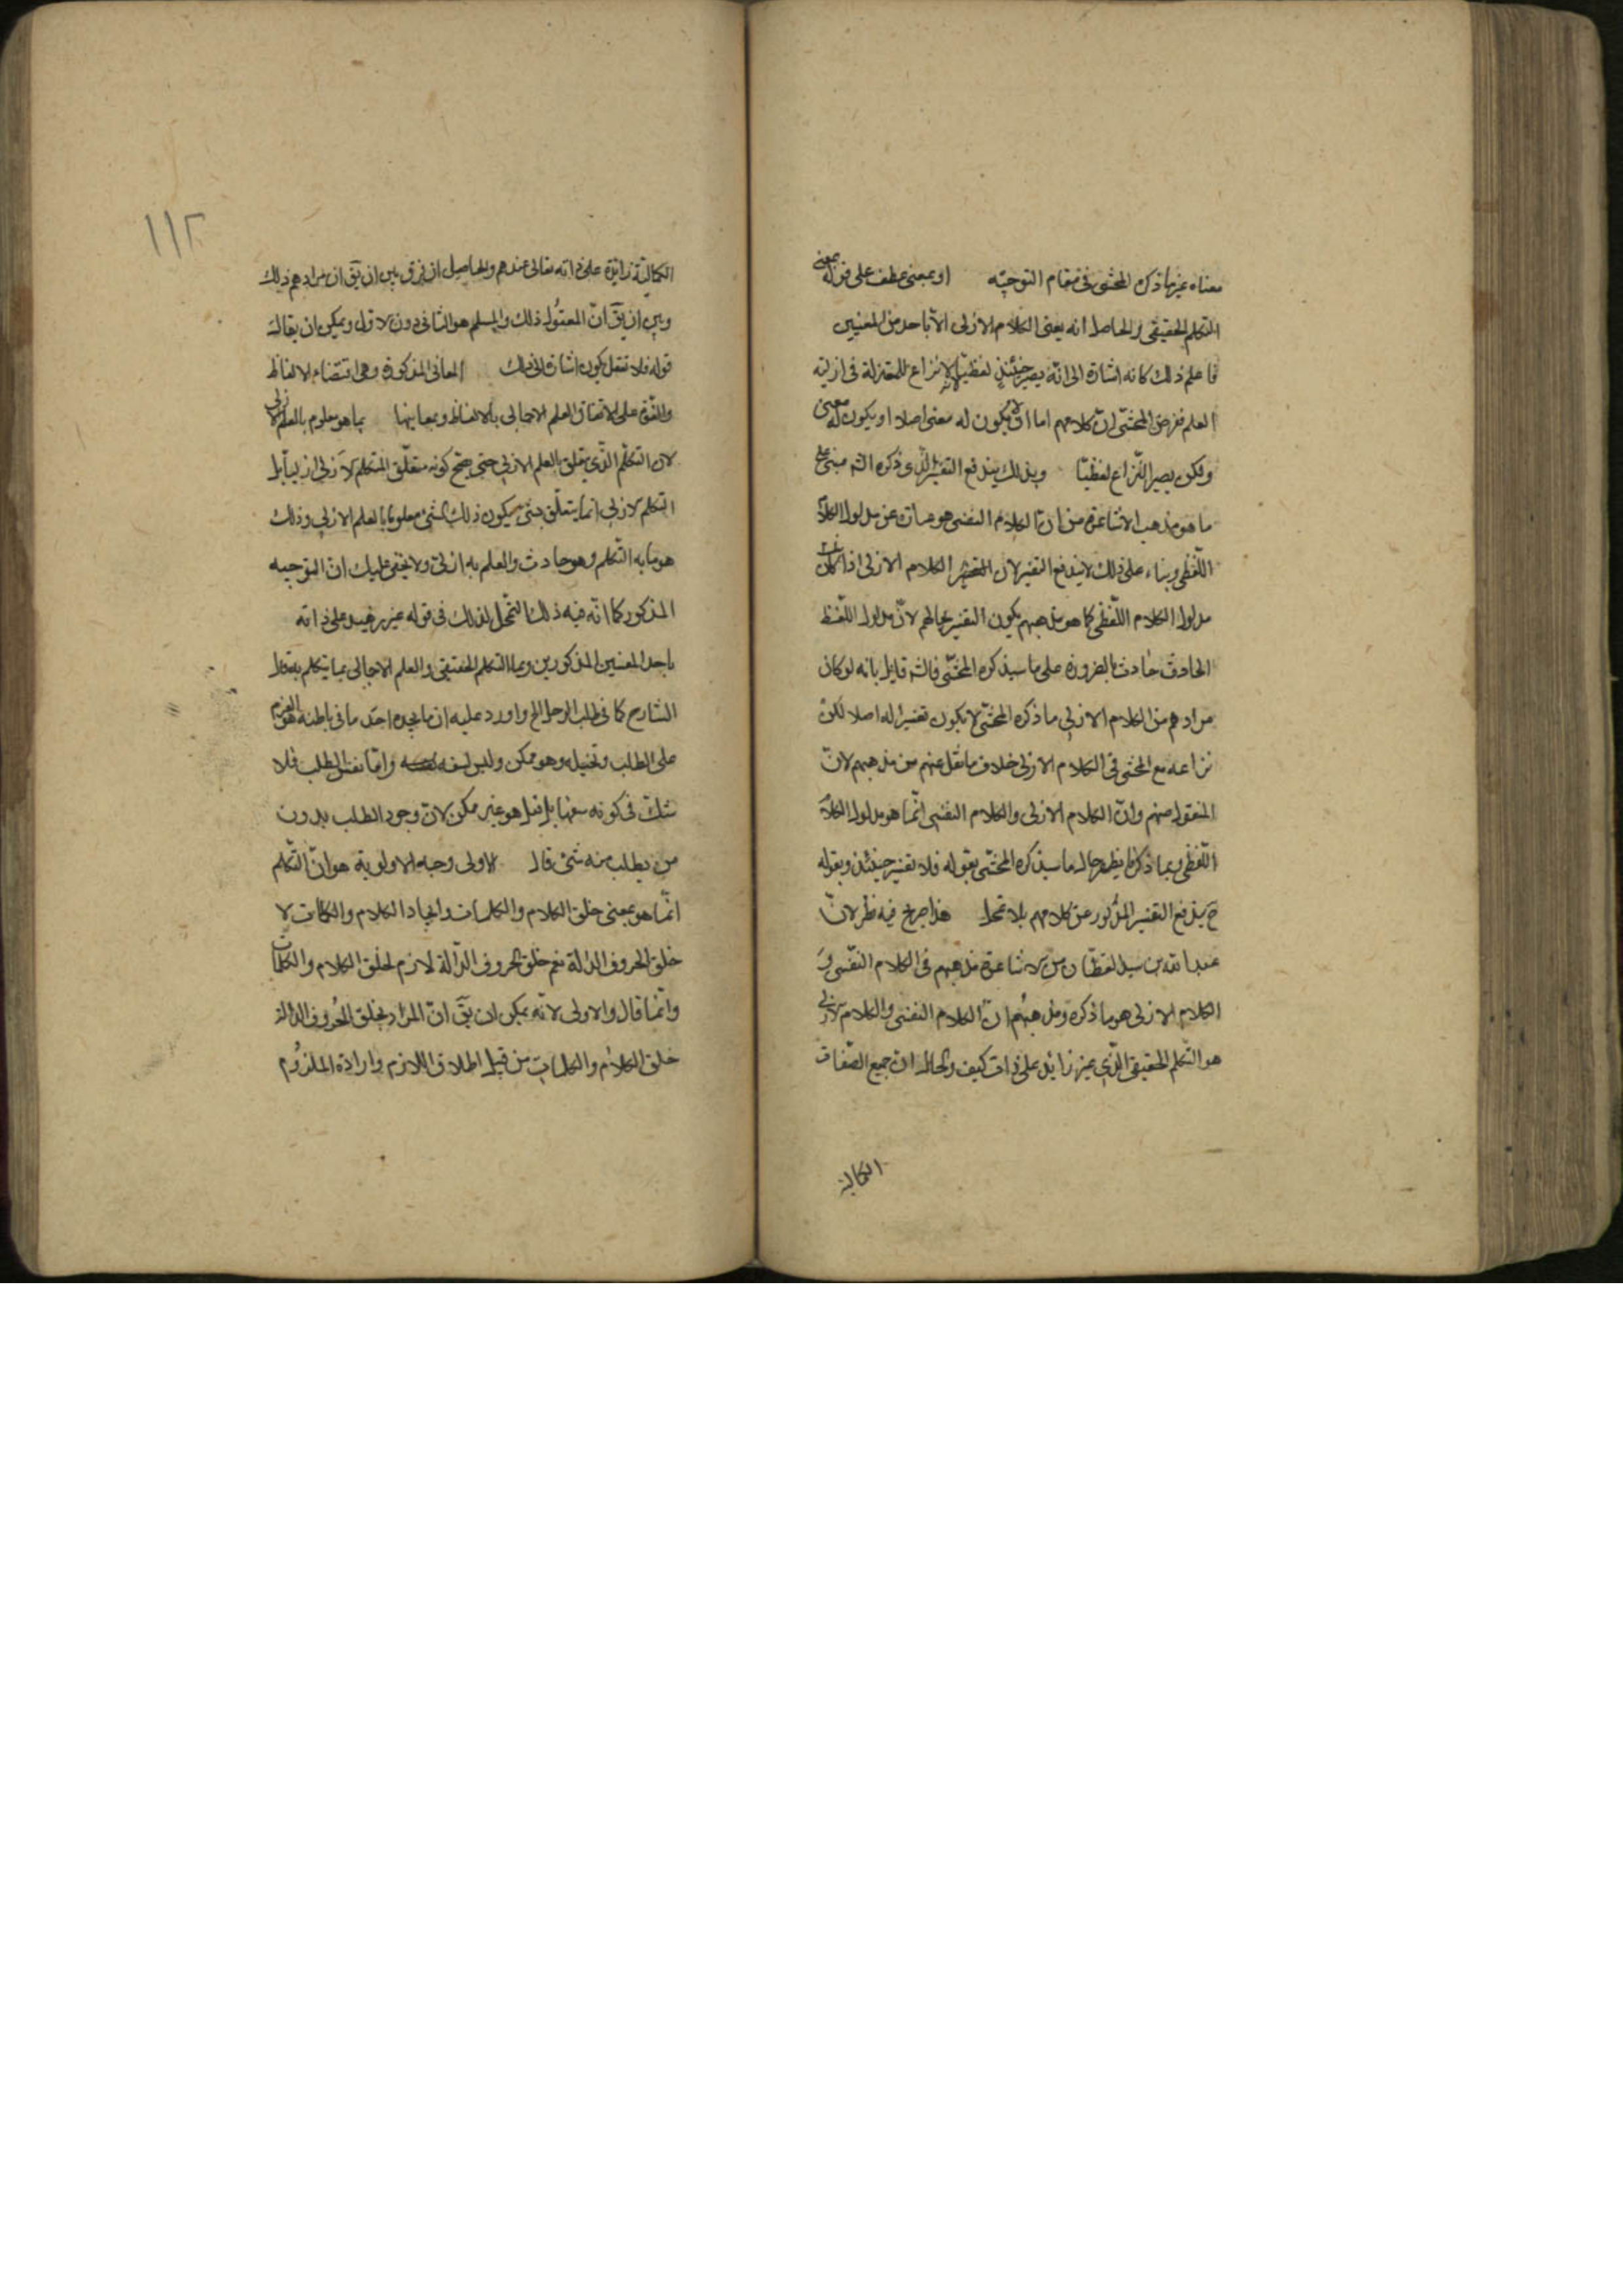 معناه غير ما ذكره المحشى فى مقام التوجيه او بمعنى عطف على قوله بمعنى
المتكلم الحقيقى والحاصل انه يعنى الكلام الازلى الا باحد من المعنيين
فاعلم ذلك كانه اشارة الى انه يصير حينئذ لفظيا لا نزاع للمعتزلة فى ازلية
العلم فغرض المحشى ان كلامهم اما ان لا يكون له معنى اصلا او يكون له معنى
ولكن يصير النزاع لفظيا وبذلك يندفع التفسير الذى ذكره الش مبنى على
ما هو مذهب الاشاعرة من ان الكلام النفسى هو عبارة عن مدلول الكلام
اللفظى وبناء على ذلك لا يندفع التفسير لان الكلام الازلى اذا كان
مدلول الكلام اللفظى كما هو مذهبهم يكون التفسير بحاله لان مدلول اللفظ
الحادث حادث بالضرورة على ما سيذكره المحشى فالش قايل بانه لو كان
مرادهم من الكلام الازلى ما ذكره المحشى لا يكون تفسيرا له اصلا لكن
نزاعه مع المحشى فى الكلام الازلى خلاف ما نقل عنهم من مذهبهم لان
المنقول منهم وان الكلام الازلى والكلام النفسى انما هو مدلول الكلام
اللفظى وبما ذكرنا يظهر حال ما سيذكره المحشى بقوله فلا تفسير حينئذ وبقوله
ح يندفع التفسير المذكور عن كلامهم بلا تمحل هذا صريح فيه نظر لان
عبد الله بن سيد القطان من الاشاعرة مذهبهم فى الكلام النفسى و
الكلام الازلى هو ما ذكره ومذهبهم ان الكلام النفسى والكلام الازلى
هو التكلم الحقيقى الذى غير زائد على ذات كيف والحال ان جميع الصفات
الكمالية
١١٢
الكمالية زائدة على ذاته تعالى عندهم والحاصل ان فرق بين ان يق ان مرادهم ذلك
وبين ان يق ان المعقول ذلك والمسلم هو الثانى دون الاول ويمكن ان يقال
قوله فلا تغفل يكون اشارة الى ذلك المعانى المذكورة وهى اقتضاء الالفاظ
والقوة على الالقاء والعلم الاجمالى بالالفاظ وبمعانيها بما هو معلوم بالعلم الازلى
لان التكلم الذى يتعلق بالعلم الازلى حتى صح كونه متعلق المتكلم الازلى ازليا بل
التكلم الازلى انما يتعلق بشئ يكون ذلك الشئ معلوما بالعلم الازلى وذلك
هو ما به التكلم وهو حادث والعلم به ازلى ولا يخفى عليك ان التوجيه
المذكور كما انه فيه ذلك التمحل لذلك فى قوله غير زايد على ذاته
باحد المعنيين المذكورين وهما التكلم الحقيقى والعلم الاجمالى بما يتكلم به قول
الشارح كما فى طلب الرجل الخ واورد عليه ان ما يجده احد ما فى باطنه هو العزم
على الطلب وتخيله وهو ممكن وليس بسفه واما نفس الطلب فلا
شك فى كونه سفها بل قيل هو غير ممكن لان وجود الطلب بدون
من يطلب منه شئ قال الاولى وجه الاولوية هو ان التكلم
انما هو بمعنى خلق الكلام والكلمات وايجاد الكلام والكلمات لا
خلق الحروف الدالة نعم خلق الحروف الدالة لازم لخلق الكلام والكلمات
وانما قال والاولى لانه يمكن ان يق ان المراد بخلق الحروف الدالة
خلق الكلام والكلمات من قبيل اطلاق اللازم وارادة الملزوم